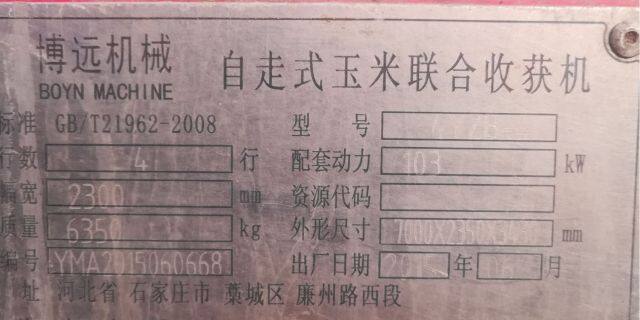 博远机械
BOYN MACHINE
自走式玉米联合收获机
标准 GB/T21962-2008 型 号
行数 4 行 配套动力 103 kW
幅宽 2300 mm 资源代码
质量 6350 kg 外形尺寸 mm
编号 YMA2015060668 出厂日期 2015 年 06 月
址 河北省 石家庄市 藁城区 廉州路西段